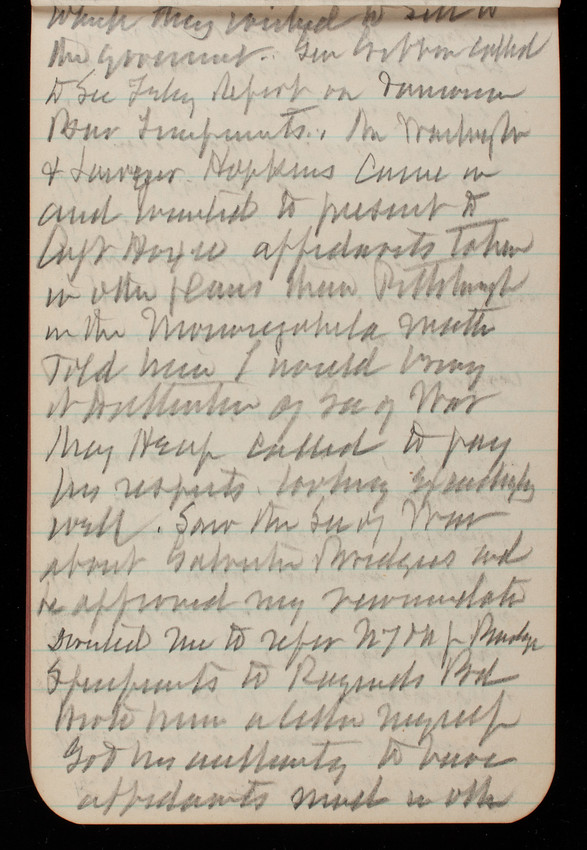 which they wished to sell to
the goverment. Gen called
to See report on
Bear
& Lawyer Hopkins Came in
and wanted to present to
Capt affidavits taken
in other places than Pittsburgh
in the Monongahela matter
Told him I would bring
it to attention of Sec of War
Maj Heap called to pay
his respects. looking exceedingly
well. Saw the Sec of War
about Galveston Bridges and
he approved my
Directed me to refer N Y & N J Bridge
to Raymonds Bd
Wrote him a letter myself
Got his authority to have
affidavits in other